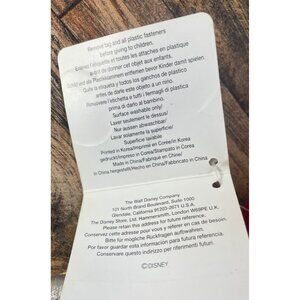 Remove tag and all plastic fasteners
before giving to children.
Enlevez l'étiquette et toutes les attaches en plastique
avant de donner cet objet aux enfants.
Schild und alle Plastikklammern entfernen bevor Kinder damit spielen.
Quite la etiqueta y todos los ganchos de plástico
antes de darle este objeto a un niño.
Rimuovere l'etichetta e tutti i fermagli di plastica
prima di darlo al bambino.
Surface washable only/
Laver seulement le dessus/
Nur aussen abwaschbar/
Lavar solamente la superficie/
Superficie lavabile
Printed in Korea/Imprimé en Corée/in Korea
gedruckt/Impreso en Corea/Stampato in Corea
Made in China/Fabriqué en Chine/
In China hergestellt/Hecho en China/Fabbricato in Cina
The Walt Disney Company
101 North Brand Boulevard, Suite 1000
Glendale, California 91203-2671 U.S.A.
The Disney Store, Ltd. Hammersmith, London W69PE U.K.
Please retain this address for future reference.
Conservez cette adresse pour vous y référer en cas de besoin.
Bitte für mögliche Rückfragen aufbewahren.
Por favor guardar esta información para futura referencia.
Conservare questo indirizzo per riferimenti futuri.
©DISNEY